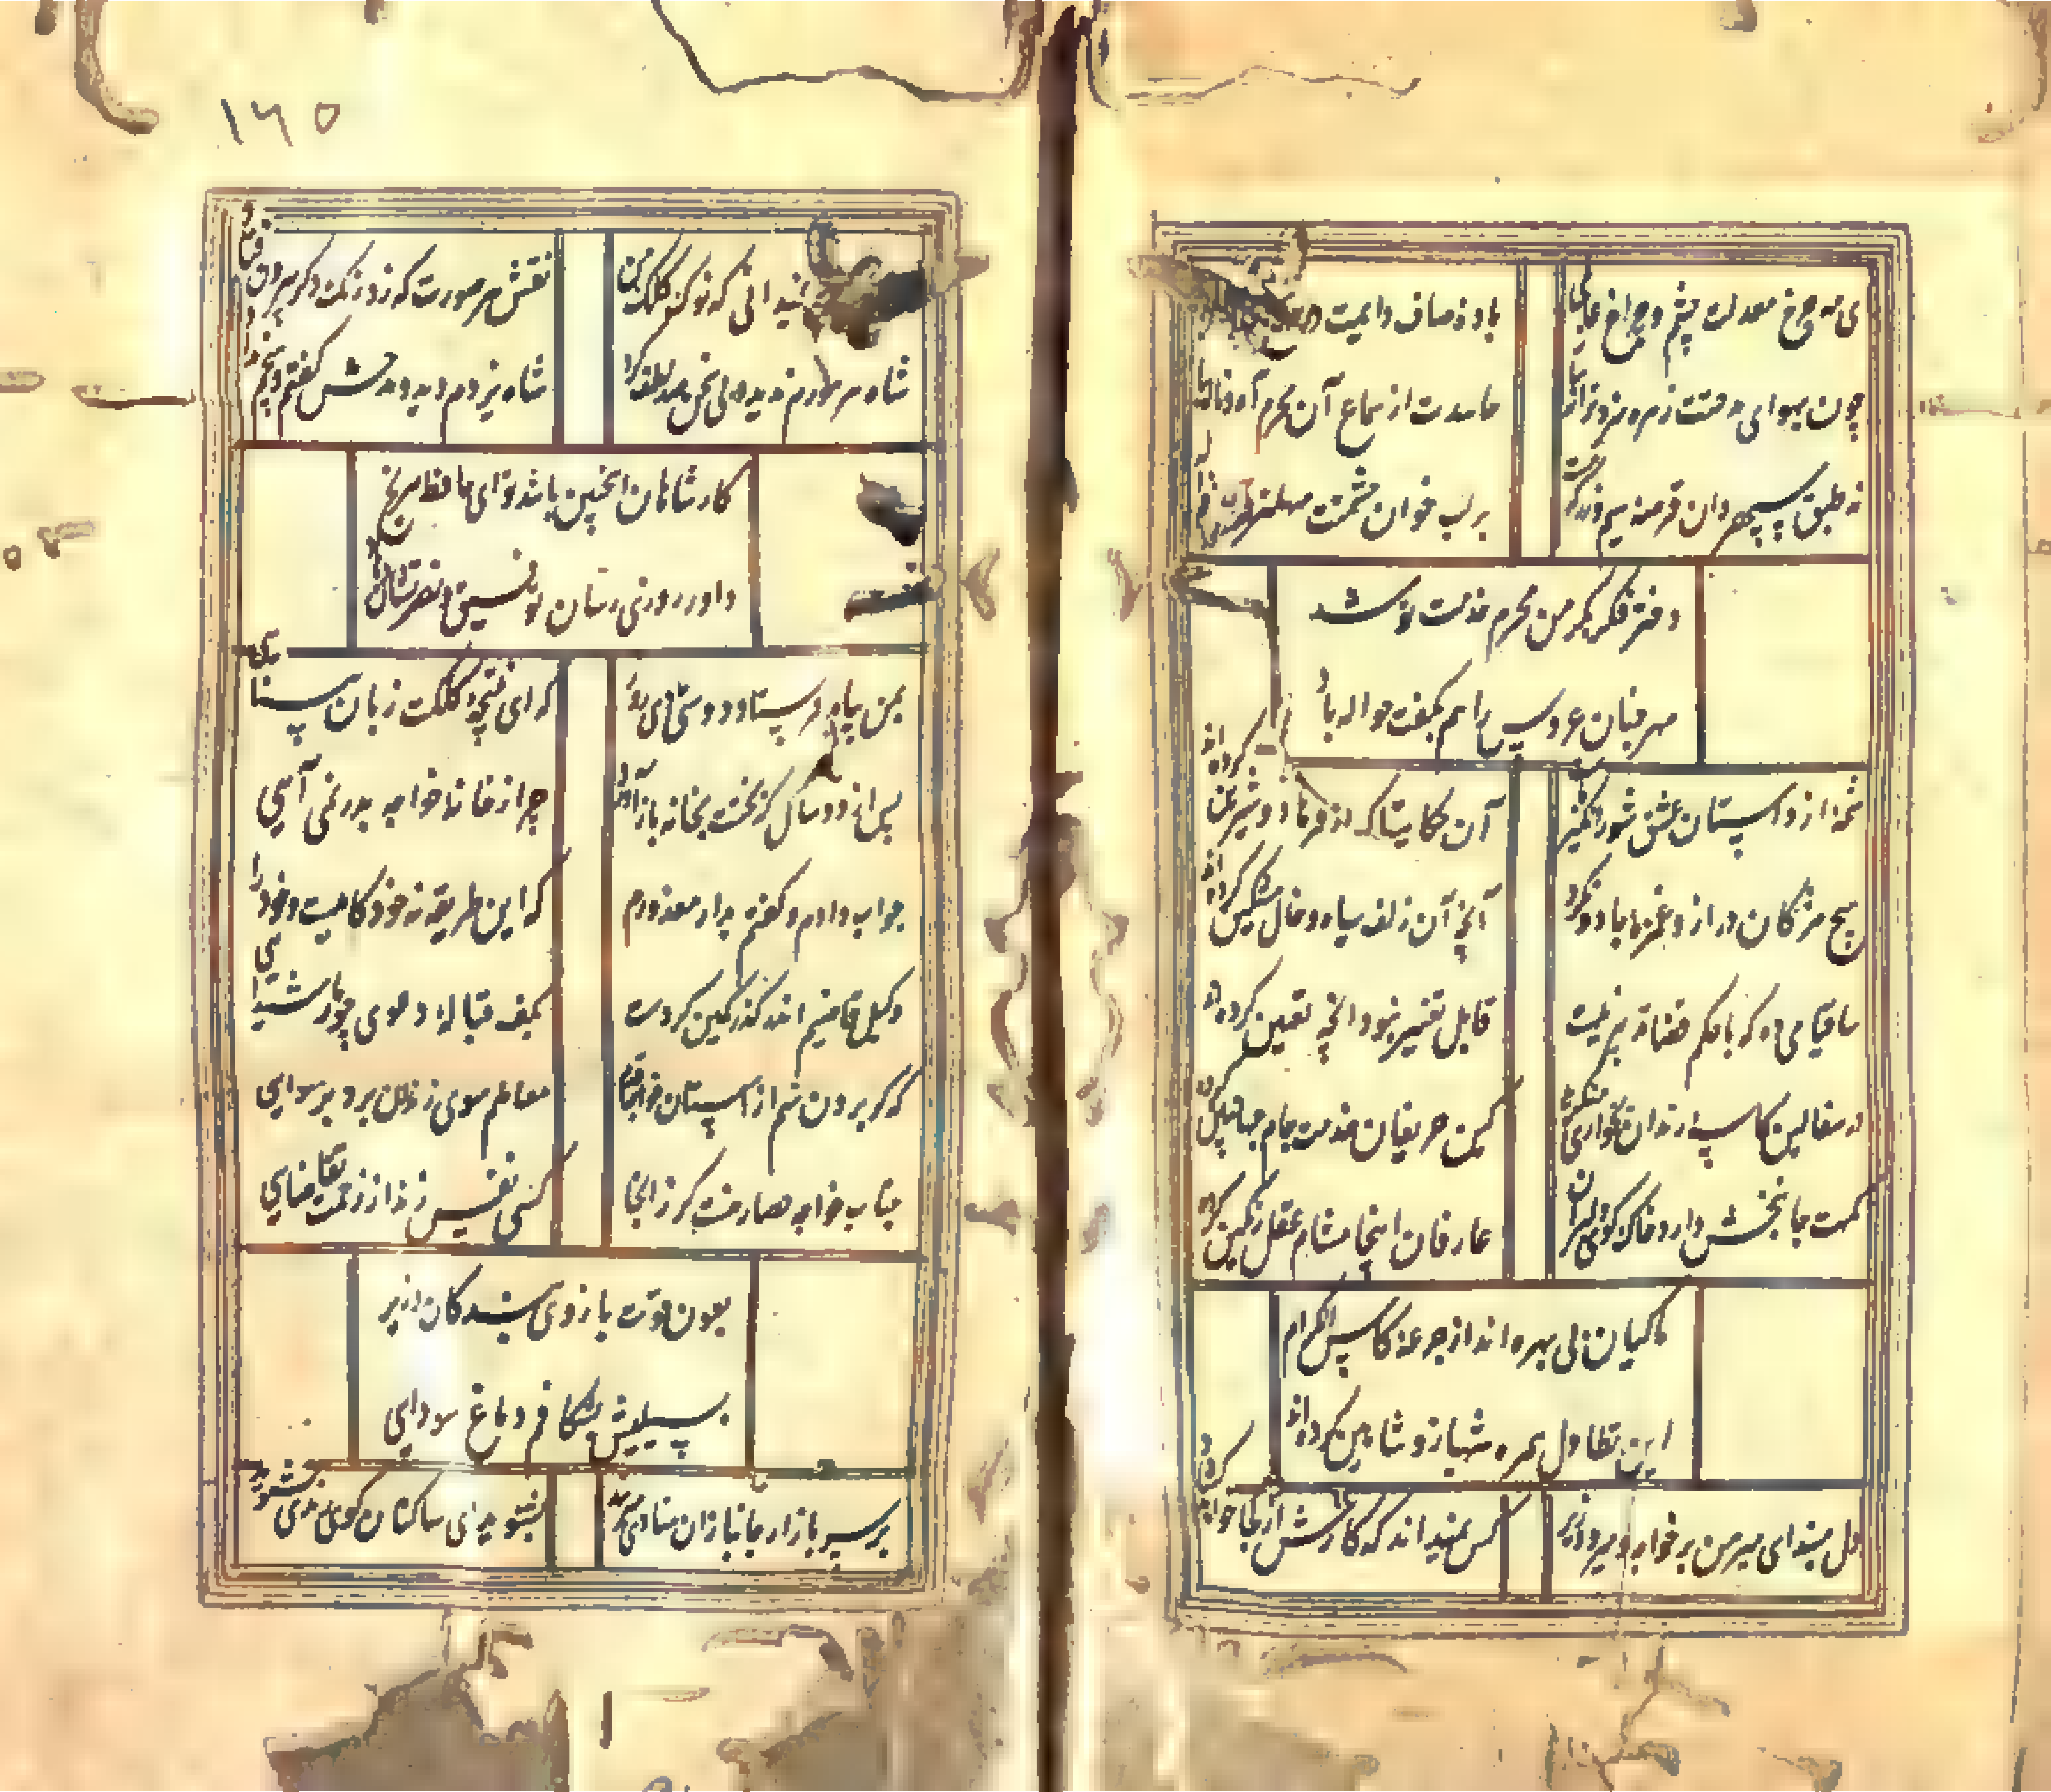 ای مه چرخ معدلت چشم و چراغ عالمی
باده صاف دایمت در
چون بهوای مدحتت زهره شود ترانه
حاسدت از سماع آن محرم آه و ناله باد
نه طبق سپهر وان قرصه سیم و زر که هست
بر لب خوان حشمتت سهلترین نواله باد
دختر فکر بکر من محرم خدمت تو شد
مهر چنان عروس را هم بکفت حواله باد
شمه از داستان عشق شورانگیز
آن حکایتها که از فرهاد و شیرین کرده‌اند
هیچ مژگان دراز و غمزه جادو نکرد
آنچه آن زلف سیاه و خال مشکین کرده‌اند
ساقیا می ده که با حکم قضا تدبیر نیست
قابل تغییر نبود آنچه تعیین کرده‌اند
در سفالین کاسه رندان بخواری منگرید
کین حریفان خدمت جام جهان‌بین کرده‌اند
نکهت جانبخش دارد خاک کوی دلبران
عارفان اینجا مشام عقل رنگین کرده‌اند
خاکیان بی بهره‌اند از جرعه کاس الکرام
این تطاول بهره شهباز و شاهین کرده‌اند
دل مبند ای میر من بر خواجه و میر و وزیر
کس نمیداند که کارش از کجا خواهد گشود
۱۶۵
نمیدانی که نوک کلک من
نقش هر صورت که زد رنگ دگر بیرون فتاد
شاه هرموزم ندید و بی سخن صد لطف کرد
شاه یزدم دید و مدحش گفتم و هیچم نداد
کار شاهان اینچنین باشد تو ای حافظ مرنج
داور روزی رسان توفیق و نصرتشان دهاد
بمن پیام فرستاد دوستی دی روز
که ای نتیجه کلکت زبان بینایی
پس از دو سال که بختت بخانه باز آورد
چرا ز خانه خواجه بدر نمی آیی
جواب دادم و گفتم بدار معذورم
که این طریقه نه خودکامیست و خود رایی
وکیل قاضیم اندر گذر کمین کردست
بکف قباله دعوی چو مار شیدایی
که گر برون نهم از آستان خواجه قدم
معاملم سوی زندان برد برسوایی
جناب خواجه حصار منست گر ز اینجا
کسی نفس زند از زحمت تقاضایی
بعون قوت بازوی بندگان وزیر
بسیلیش بشکافم دماغ سودایی
بر سر بازار جانبازان منادی میزنند
بشنوید ای ساکنان کوی رندی بشنوید